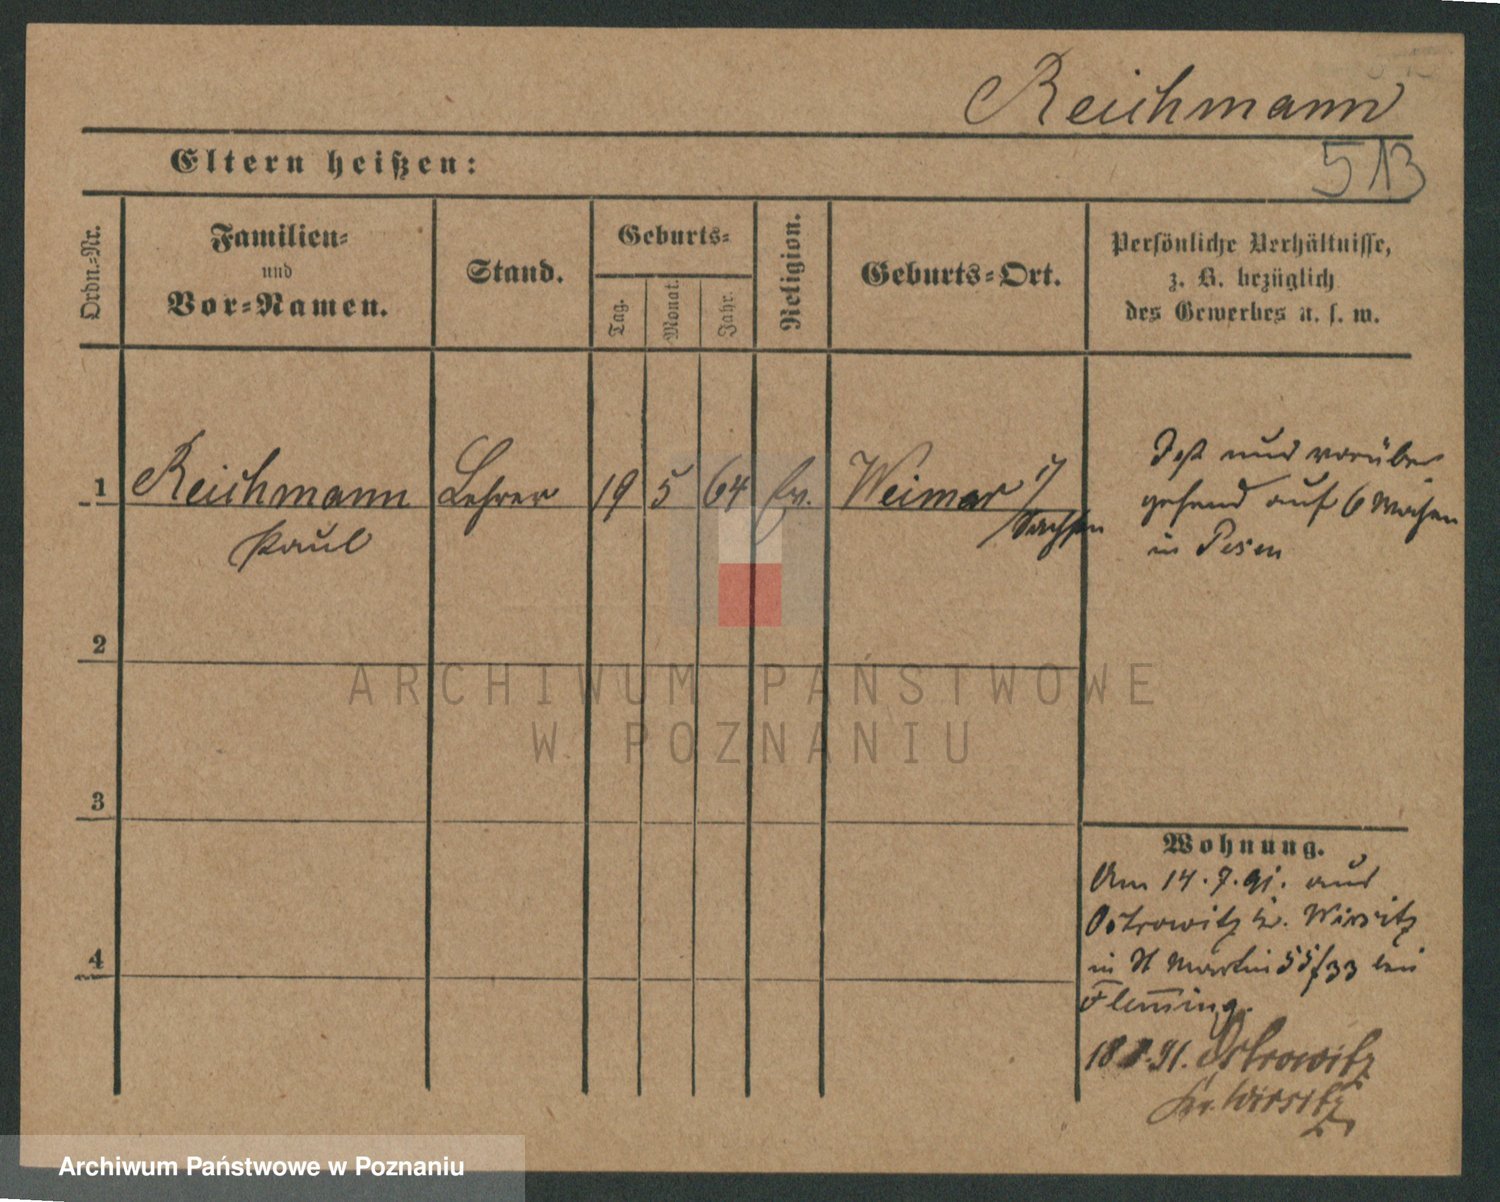 Reichmann
513
Eltern heißen:
Ordn.-Nr.
Familien-
und
Vor-Namen.
Stand.
Geburts-
Tag.
Monat.
Jahr.
Religion.
Geburts-Ort.
Persönliche Verhältnisse,
z. B. bezüglich
des Gewerbes u. s. w.
1
Reichmann
Paul
Lehrer
19
5
64
Ev.
Weimar i/
Sachsen
Ist nur vorüber
gehend auf 6 Wochen
in Posen
2
3
4
Wohnung.
Am 14.7.91. aus
Ostrowitz Kr. Wirsitz
in St Martin 55/33 bei
Flem̅ing.
18 .91. Ostrowitz
Kr. Wirsitz
ARCHIWUM PAŃSTWOWE
W POZNANIU
Archiwum Państwowe w Poznaniu